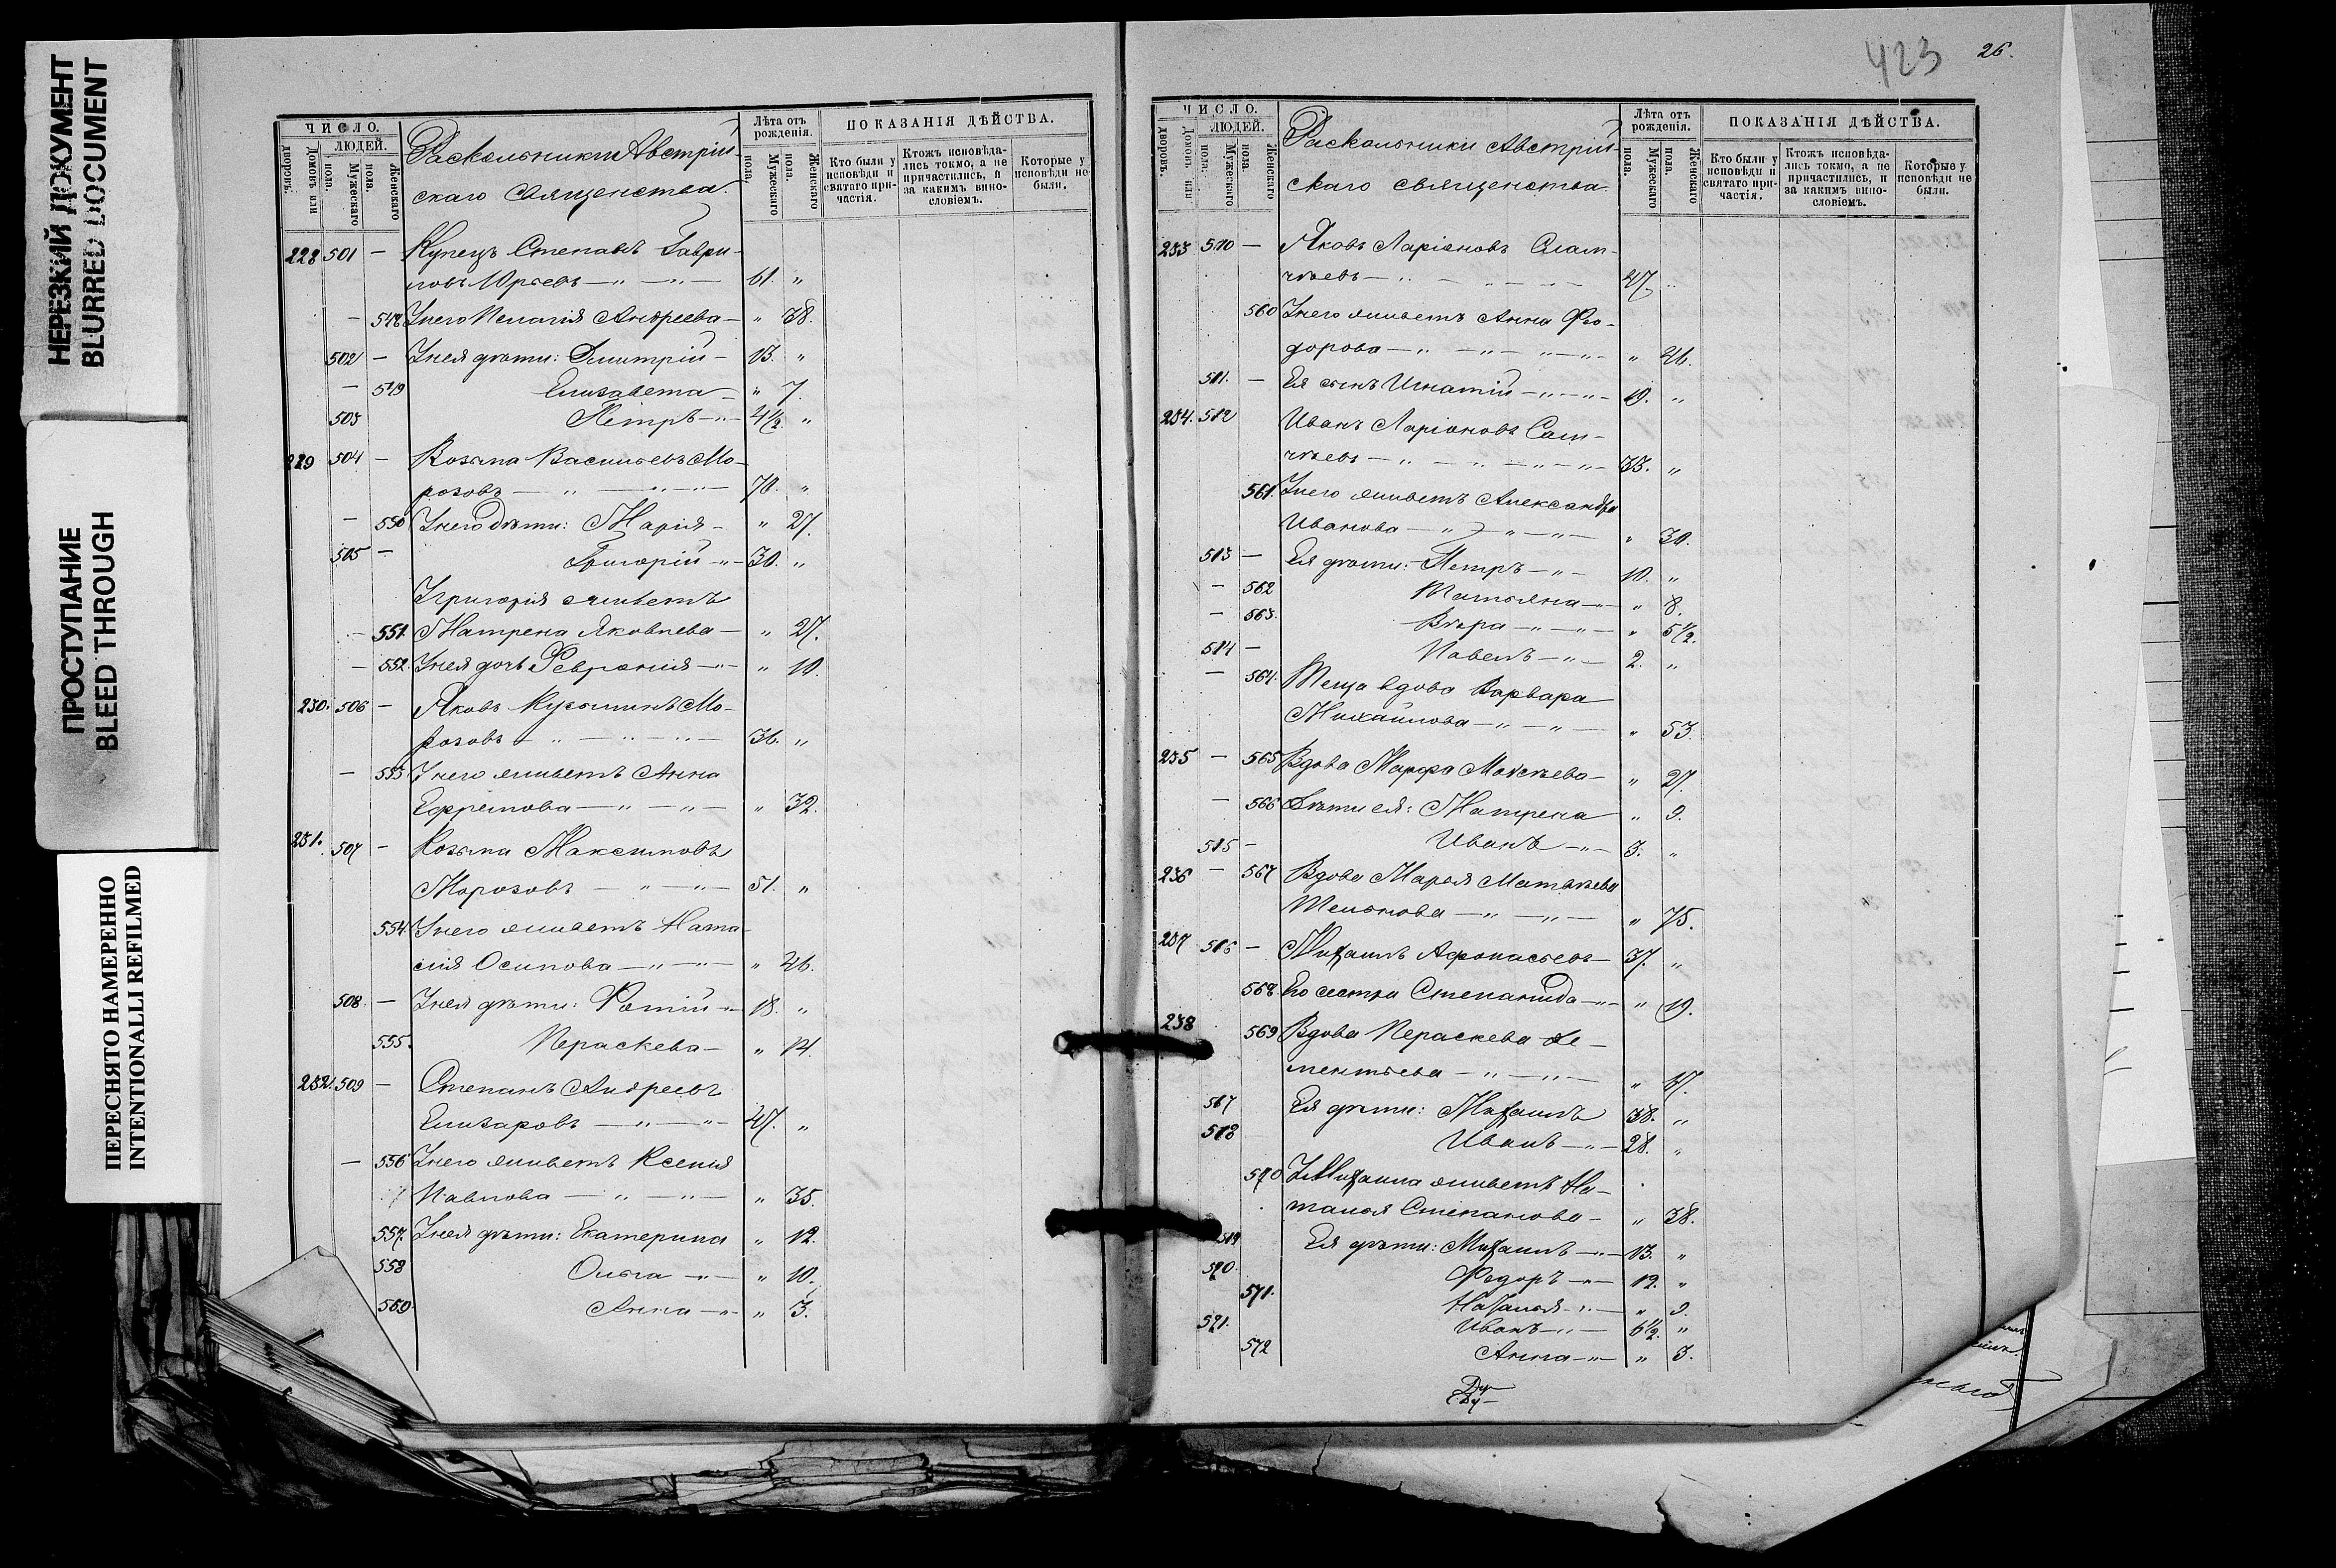 НЕРЕЗКИЙ ДОКУМЕНТ
BLURRED DOCUMENT
ПРОСТУПАНИЕ
BLEED THROUGH
ПЕРЕСНЯТО НАМЕРЕННО
INTENTIONALLI REFILMED
ЧИСЛО.
ЛЮДЕЙ.
Домовъ или дворовъ.
Мужескаго пола.
Женскаго пола.
Раскольники Австрій-
скаго священства.
Лѣта отъ рожденія.
Мужескаго пола.
Женскаго пола.
ПОКАЗАНІЯ ДѢЙСТВА.
Кто были у исповѣди и святаго при-частія.
Ктожъ исповѣда-лись токмо, а не причастились, и за какимъ вино-словіемъ.
Которые у исповѣди не были.
228 501 — Купецъ Степанъ Гаври-
ловъ Юрьевъ — „ — „ — 61. „
— 548 У него Пелагія Андреева — „ 38.
502 — У нея дѣти: Дмитрій — 13. „
— 549 Елизавета — „ 7.
503 Петръ — „ — 4½. „
229 504 — Козьма Васильевъ Мо-
розовъ — „ — „ — 70. „
— 550 У него дѣти: Марія — „ 27.
505 — Григорій — „ — 30. „
У Григорія живетъ
— 551. Матрена Яковлева — „ 27.
— 552. У нея дочь Февронія — „ — „ 10.
230. 506 — Яковъ Кузьминъ Мо-
розовъ — „ — „ — „ — 36. „
— 553 У него живетъ Анна
Ефремова — „ — „ — „ 32.
231. 507 — Козьма Максимовъ
Морозовъ — „ — „ — 51. „
554 У него живетъ Ната-
лія Осипова — „ — „ — „ 46.
508. — У нея дѣти: Фотій — „ — 18. „
555. Пераскева — „ 14.
232. 509 — Степанъ Андреевъ
Елизаровъ — „ — „ — 47. „
— 556 У него живетъ Ксенія
Павлова — „ — „ — „ 35.
557. У нея дѣти: Екатерина „ 12.
558 Ольга — „ — „ 10.
560. Анна — „ — „ 3.
423 26.
ЧИСЛО.
ЛЮДЕЙ.
Домовъ или дворовъ.
Мужескаго пола.
Женскаго пола.
Раскольники Австрій-
скаго священства.
Лѣта отъ рожденія.
Мужескаго пола.
Женскаго пола.
ПОКАЗАНІЯ ДѢЙСТВА.
Кто были у исповѣди и святаго при-частія.
Ктожъ исповѣда-лись токмо, а не причастились, и за какимъ вино-словіемъ.
Которые у исповѣди не были.
233 510 — Яковъ Ларіоновъ
47. „
560 У него живетъ Анна Фео-
дорова — „ — „ — „ — „ — „ 46.
511. — Ея сынъ Игнатій — „ — „ — 19. „
234. 512 Иванъ Ларіоновъ
33. „
561. У него живетъ Александра
Иванова — „ — „ — „ — „ 30.
513 — Ея дѣти: Петръ — „ — 10. „
— 562 Матьяна — „ — „ 8.
— 563. Вѣра — „ — „ — „ 5½.
514 — Павелъ — „ — 2. „
— 564. Теща вдова Варвара
Михайлова — „ — „ — „ 53.
235 — 565 Вдова Марфа — „ 27.
— 566 Дѣти ея: Матрена „ 9.
515 — Иванъ — „ — 3. „
236 — 567 Вдова Марья Матвѣева
— „ — „ — „ 75.
237 516 — Михаилъ Афонасьевъ — 37. „
568. Его сестра Степанида — „ — „ 19.
238 569 Вдова Пераскева Де-
ментьева — „ — „ —
517 Ея дѣти: Михаилъ 38. „
518 Иванъ — „ — 28. „
570 У Михаила живетъ На-
талья Степанова — „ 38.
519 Ея дѣти: Михаилъ — „ — 13. „
520. Федоръ — „ — 12. „
571. Наталья — „ — „ 9.
521. Иванъ — „ — 6½. „
572 Анна — „ — „ 3.